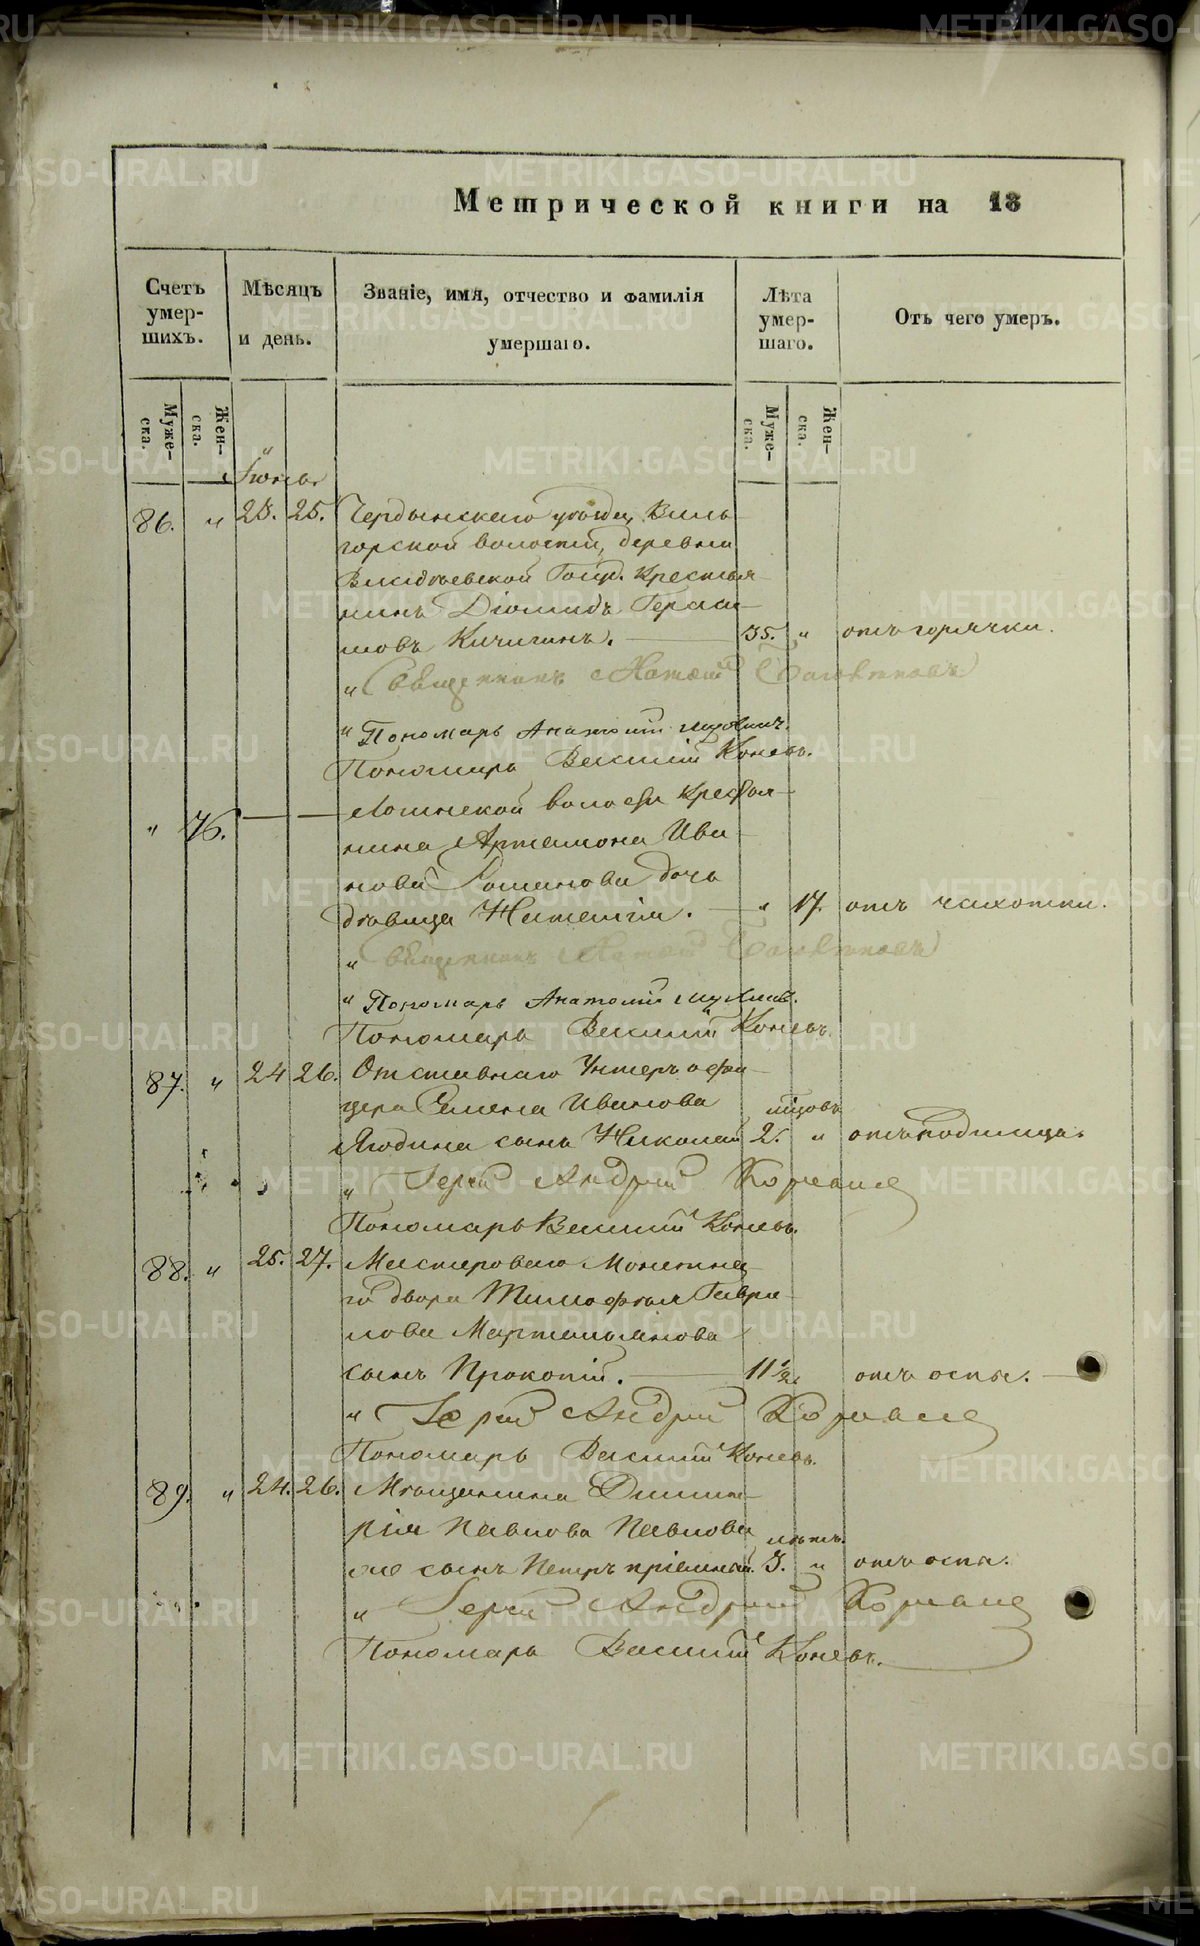 Метрической книги на 18
Счетъ умер- шихъ.
Мѣсяцъ и день.
Званіе, имя, отчество и фамилія умершаго.
Лѣта умер- шаго.
Отъ чего умеръ.
Муже- ска.
Жен- ска.
Муже- ска.
Жен- ска.
Іюнь
86. " 23. 25. Чердынскаго уѣзда, Виль-
горской волости, деревни
Госуд. Крестья-
нинъ Діомидъ Гераси-
мовъ Кичигинъ. 35. " отъ горячки.
" Священникъ
" Пономарь Анатолій
Пономарь Василій Коневъ.
" 76. волости Крестья-
нина Артамона Ива-
нова Романова дочь
дѣвица Наталія. " 17. отъ чахотки.
" Священникъ
" Пономарь Анатолій
Пономарь Василій Коневъ.
87. " 24 26. Отставнаго Унтеръ офи-
цера Семена Иванова
Ягодина сынъ Николай 2. " отъ родимца.
" Іерей Андрей
Пономарь Василій Коневъ.
88. " 25. 27. Мастероваго Монетна-
го двора Тимофея Гаври-
лова Мартемьянова
сынъ Прокопій. 11 1/2. отъ оспы.
" Іерей Андрей
Пономарь Василій Коневъ.
89. " 24. 26. Мѣщанина Димит-
рія Павлова Павлова
же сынъ Петръ пріемный. лѣтъ 3. " отъ оспы.
" Іерей Андрей
Пономарь Василій Коневъ.
METRIKI.GASO-URAL.RU